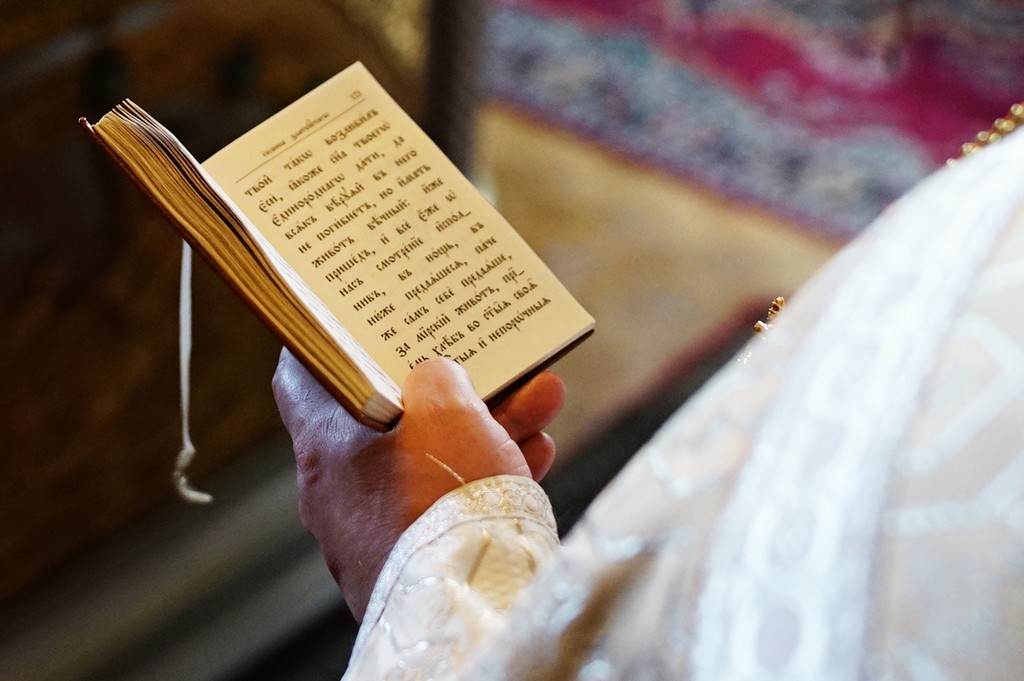 Іѡанна Златоꙋстагѡ
твой такѡ возлюбилъ
єси, ꙗкоже сн҃а твоегѡ
Єдинороднаго дати, да
всѧкъ вѣрꙋѧй въ него
не погибнетъ, но имать
животъ вѣчный:
пришедъ, и все єже ѡ
насъ смотренїе испол_
нивъ, въ нощь, въ
нюже предаѧшесѧ, паче
же самъ себе предаѧше,
За мїрскїй животъ, прї_
емь хлѣбъ во ст҃ыѧ своѧ
и непорѡчныѧ